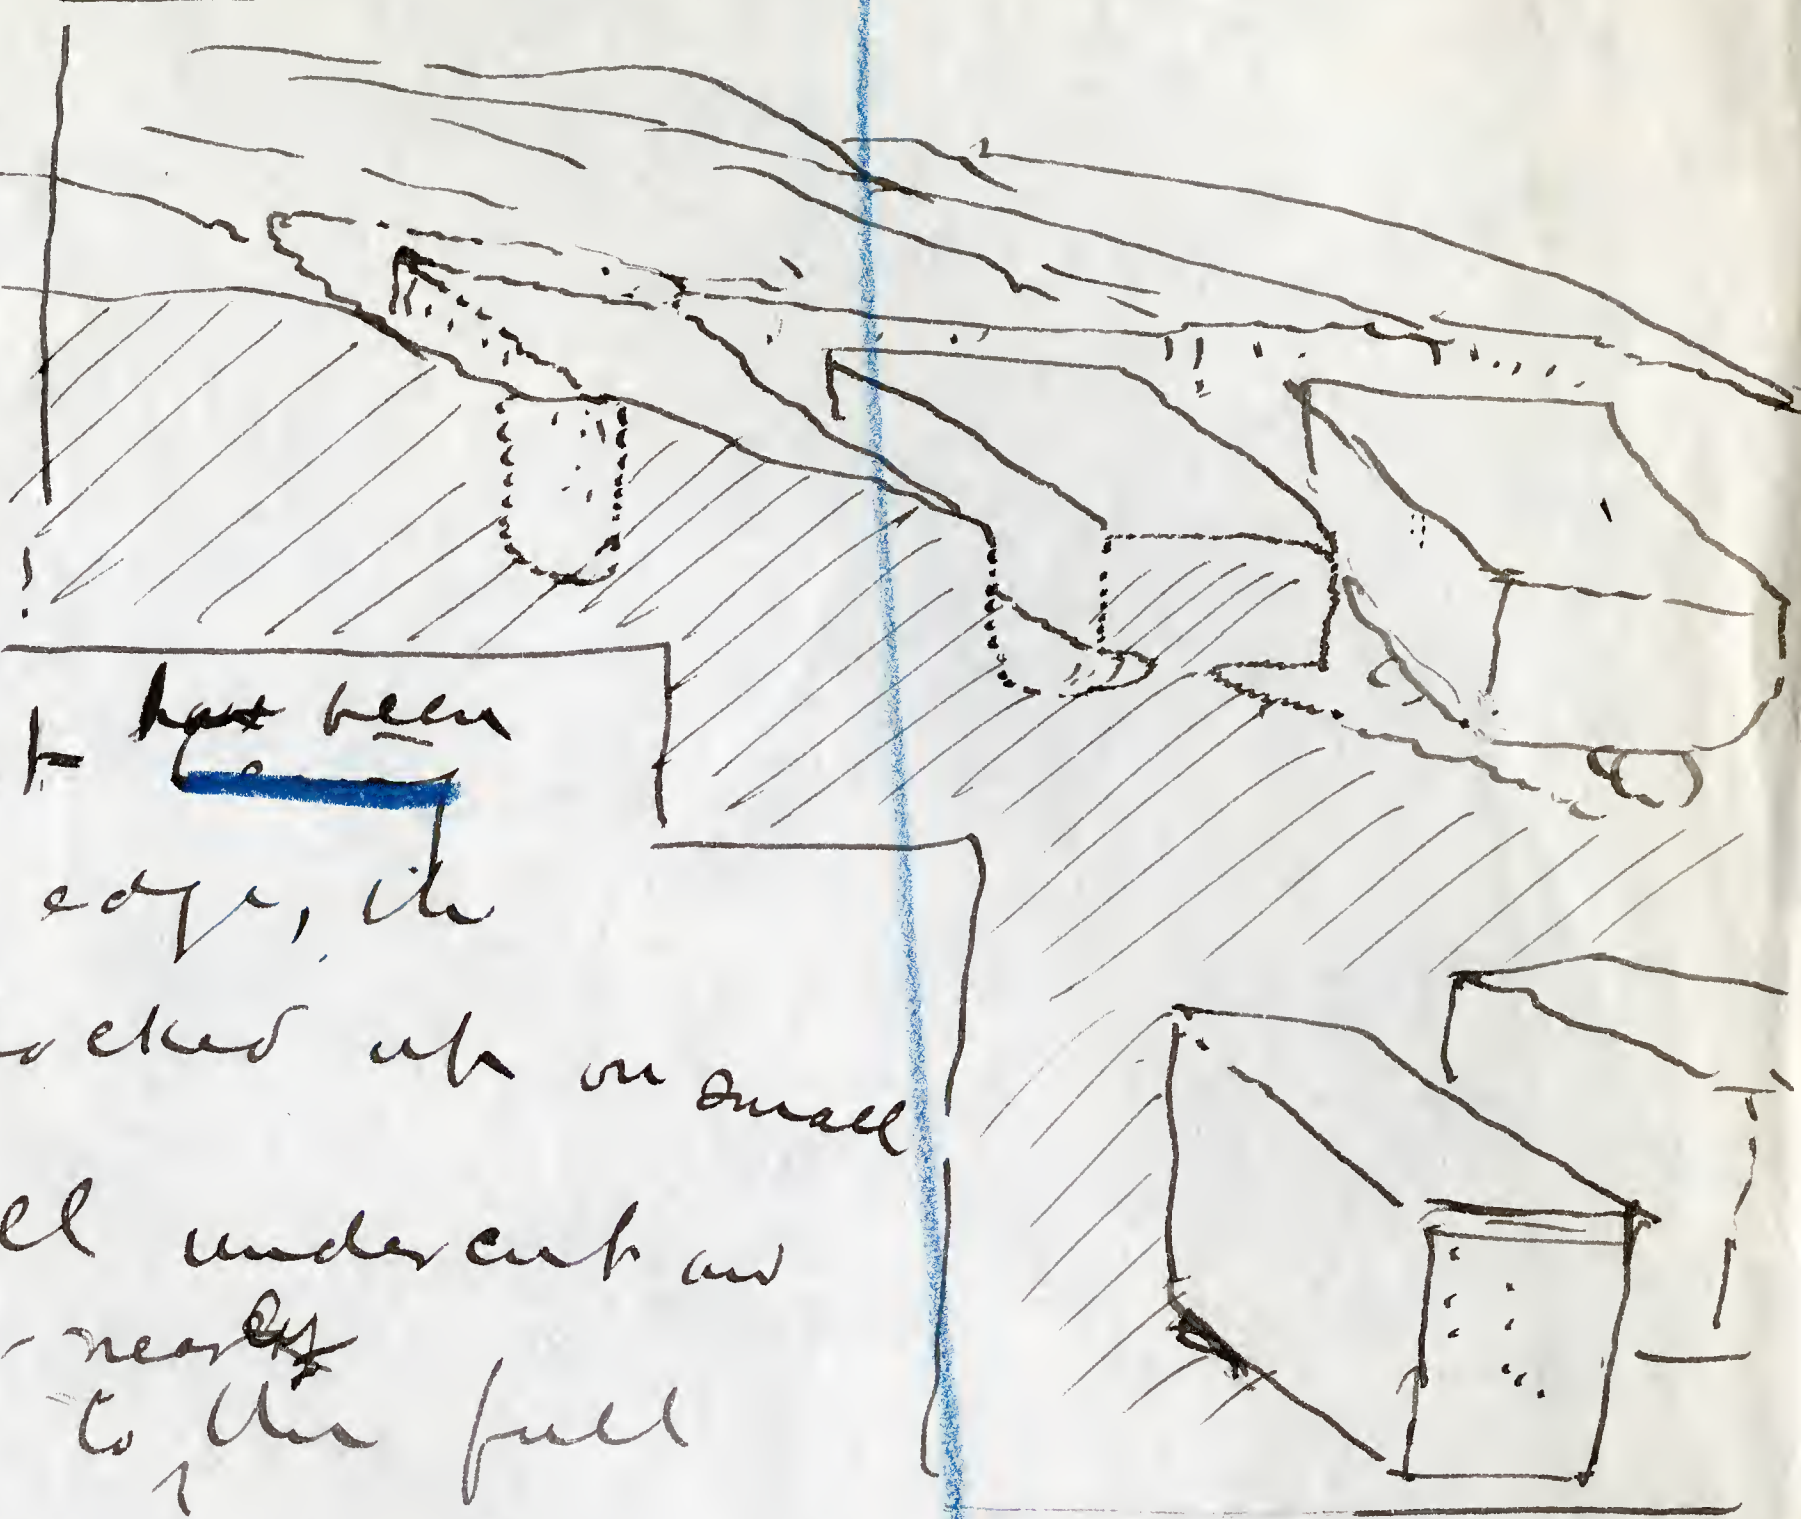 has been
edge, the
ocked up on small
ll undercut and
nearly
to the full